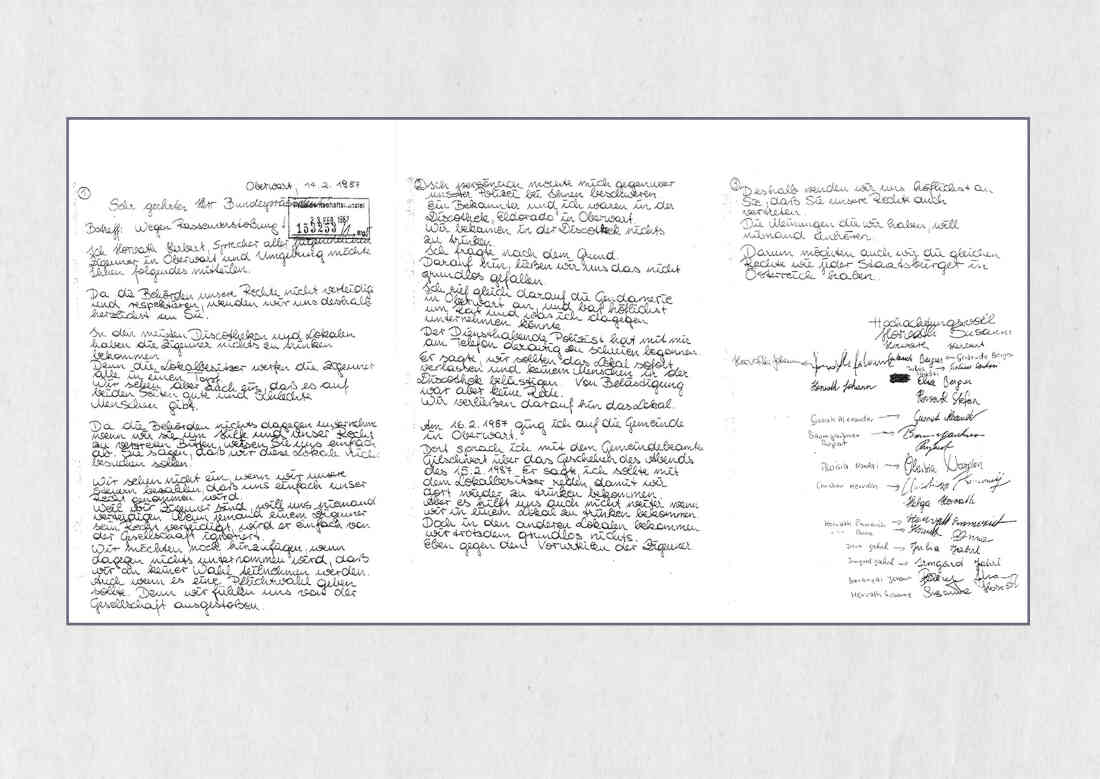 ①
Oberwart, 14.2.1987
Sehr geehrter Herr Bundespräsident
Präsidentschaftskanzlei
23. FEB. 1987
153253
Betreff: Wegen Rassenverstoßung!
Ich Horvath Herbert, Sprecher aller
Zigeuner in Oberwart und Umgebung möchte
Ihnen folgendes mitteilen.
Da die Behörden unsere Rechte nicht verteidig
und respektieren, wenden wir uns deshalb
herzlichst an Sie.
In den meisten Discotheken und Lokalen
haben die Zigeuner nichts zu trinken
bekommen.
Denn die Lokalbesitzer werfen die Zigeuner
alle in einen Topf.
Wir sehen aber auch ein, daß es auf
beiden Seiten gute und schlechte
Menschen gibt.
Da die Behörden nichts dagegen unternehmen
wenn wir sie um Hilfe und unser Recht
zu vertreten bitten, weisen sie uns einfach
ab. Sie sagen, daß wir diese Lokale nicht
besuchen sollen.
Wir sehen nicht ein, wenn wir unsere
Steuern bezahlen, daß uns einfach unser
Recht genommen wird.
Weil wir Zigeuner sind, will uns niemand
verteidigen. Wenn jemand einem Zigeuner
sein Recht verteidigt, wird er einfach von
der Gesellschaft ignoriert.
Wir möchten noch hinzufügen, wenn
dagegen nichts unternommen wird, daß
wir an keiner Wahl teilnehmen werden.
Auch wenn es eine Pflichtwahl geben
sollte. Denn wir fühlen uns von der
Gesellschaft ausgestoßen.
② Ich persönlich möchte mich gegenüber
unserer Polizei bei Ihnen beschweren
Ein Bekannter und ich waren in der
Discothek „Eldorado" in Oberwart.
Wir bekamen in der Discothek nichts
zu trinken.
Ich fragte nach dem Grund.
Darauf hin, ließen wir uns das nicht
grundlos gefallen.
Ich rief gleich darauf die Gendamerie
in Oberwart an, und bat höflichst
um Rat und was ich dagegen
unternehmen könnte
Der Diensthabende Polizist hat mit mir
am Telefon derartig zu schreien begonnen.
Er sagte, wir sollten das Lokal sofort
verlassen und keinem Menschen in der
Discothek belästigen. Von Belästigung
war aber keine Rede.
Wir verließen darauf hin das Lokal.
Am 16.2.1987 ging ich auf die Gemeinde
in Oberwart.
Dort sprach ich mit dem Gemeindebeamte
über das Geschehen des Abends
des 15.2.1987. Er sagte, ich sollte mit
dem Lokalbesitzer reden, damit wir
dort wieder zu trinken bekommen
aber es hilft uns auch nicht weiter wenn
wir in einem Lokal zu trinken bekommen
Doch in den anderen Lokalen bekommen
wir trotzdem grundlos nichts.
Eben gegen den Vorurteilen der Zigeuner
Deshalb wenden wir uns höflichst an
Sie, daß Sie unsere Rechte auch
vertreten.
Die Meinungen die wir haben, will
niemand anhören.
Darum möchten auch wir die gleichen
Rechte wie jeder Staatsbürger in
Österreich haben.
Hochachtungsvoll
Horvath
Horvath Johann
Berger → Gertrude Berger
Horvath Johann
Elsa Berger
Horvath Stefan
Gussak Alexander →
Baumgartner →
→
→
Helga Horvath
Horvath Emmerich →
Horvath
→ Julia Jahrl
Irmgard → Irmgard
→
Horvath Susanne Susanne Horvath